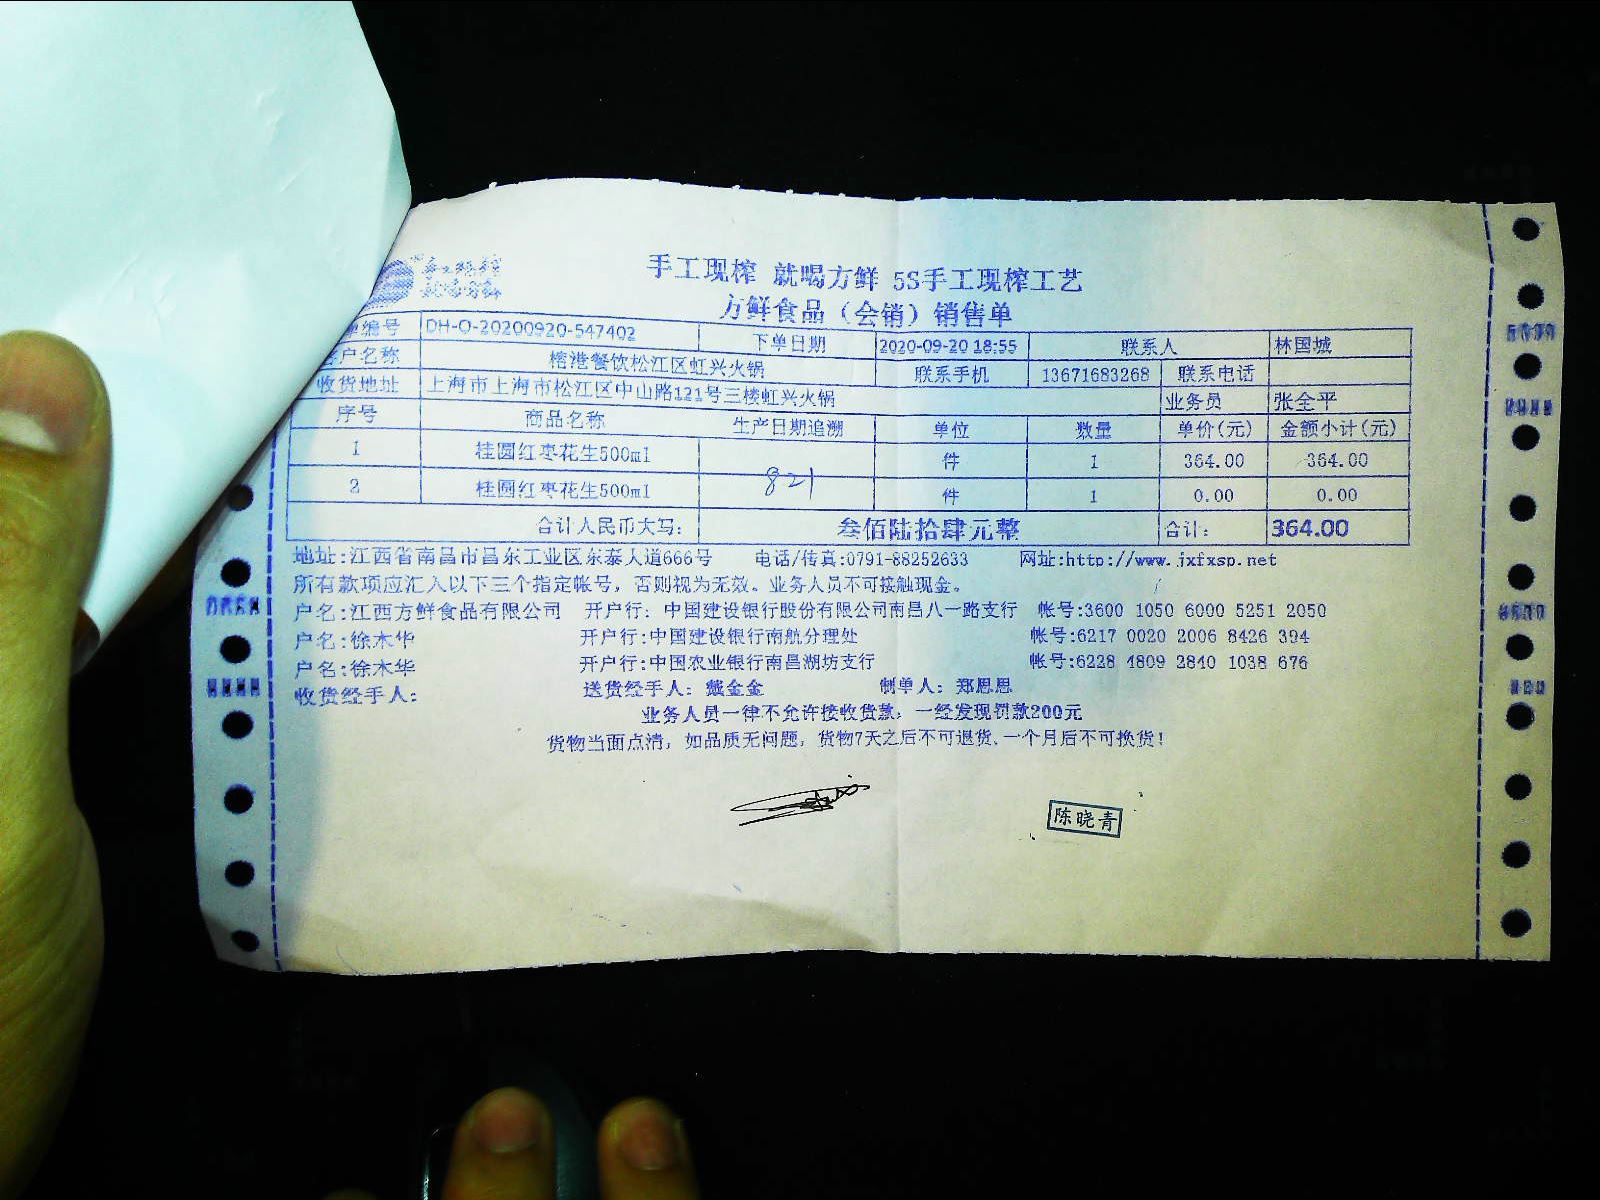 手工现榨 就喝方鲜 5S手工现榨工艺
方鲜食品（会销）销售单
单编号 DH-O-20200920-547402 下单日期 2020-09-20 18:55 联系人 林国城
客户名称 榕港餐饮松江区虹兴火锅 联系手机 13671683268 联系电话
收货地址 上海市上海市松江区中山路121号三楼虹兴火锅 业务员 张全平
序号 商品名称 生产日期追溯 单位 数量 单价(元) 金额小计(元)
1 桂圆红枣花生500ml 件 1 364.00 364.00
821
2 桂圆红枣花生500ml 件 1 0.00 0.00
合计人民币大写: 叁佰陆拾肆元整 合计: 364.00
地址:江西省南昌市昌东工业区东泰大道666号 电话/传真:0791-88252633 网址:http://www.jxfxsp.net
所有款项应汇入以下三个指定帐号，否则视为无效。业务人员不可接触现金。
户名:江西方鲜食品有限公司 开户行: 中国建设银行股份有限公司南昌八一路支行 帐号:3600 1050 6000 5251 2050
户名:徐木华 开户行:中国建设银行南航分理处 帐号:6217 0020 2006 8426 394
户名:徐木华 开户行:中国农业银行南昌湖坊支行 帐号:6228 4809 2840 1038 676
收货经手人: 送货经手人: 戴金金 制单人: 郑思思
业务人员一律不允许接收货款，一经发现罚款200元
货物当面点清，如品质无问题，货物7天之后不可退货、一个月后不可换货！
陈晓青